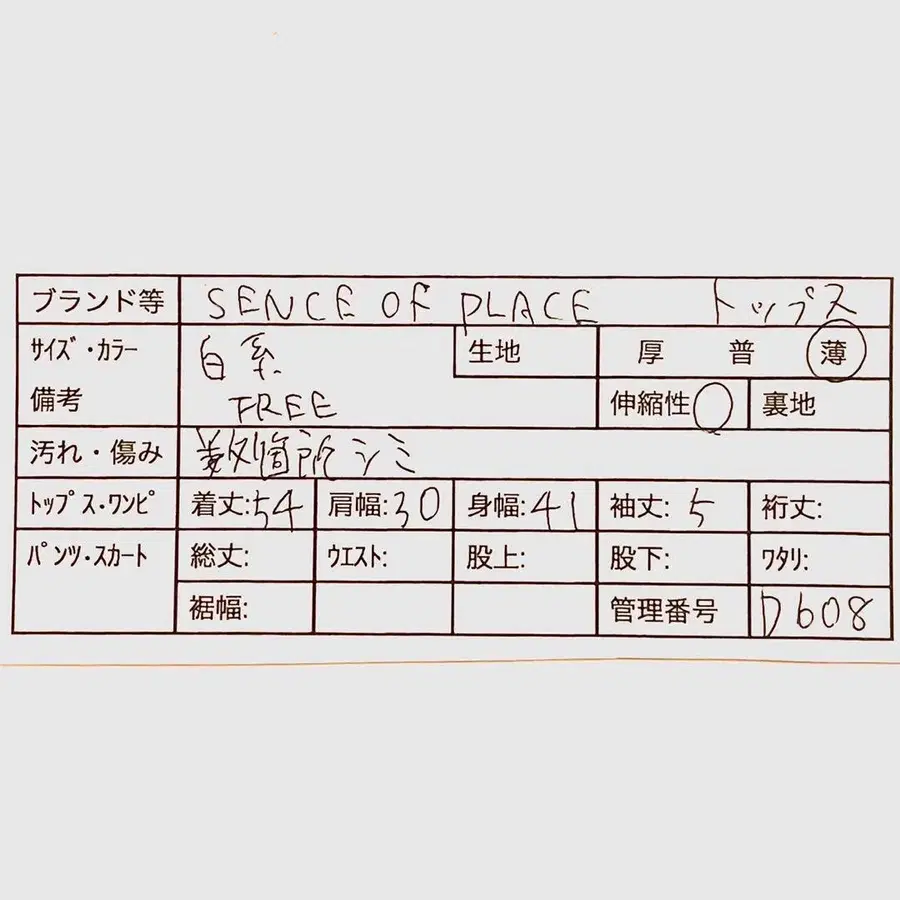 ブランド等 SENCE OF PLACE トップス
サイズ・カラー 白系 生地 厚 普 薄
備考 FREE 伸縮性 ○ 裏地
汚れ・傷み 数箇所シミ
トップス・ワンピ 着丈:54 肩幅:30 身幅:41 袖丈:5 裄丈:
パンツ・スカート 総丈: ウエスト: 股上: 股下: ワタリ:
裾幅: 管理番号 D608